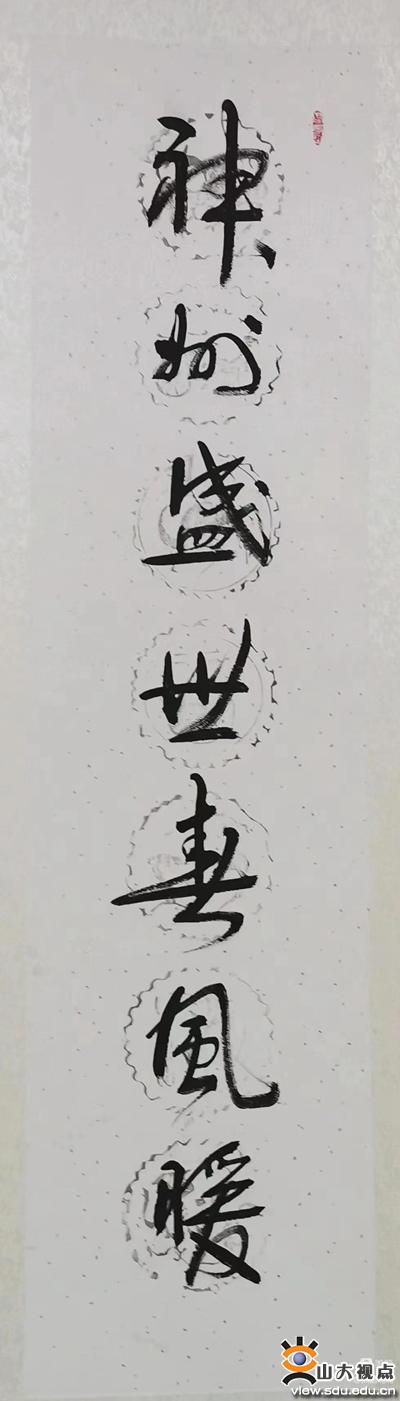 神州盛世春風暖
山大视点
view.sdu.edu.cn